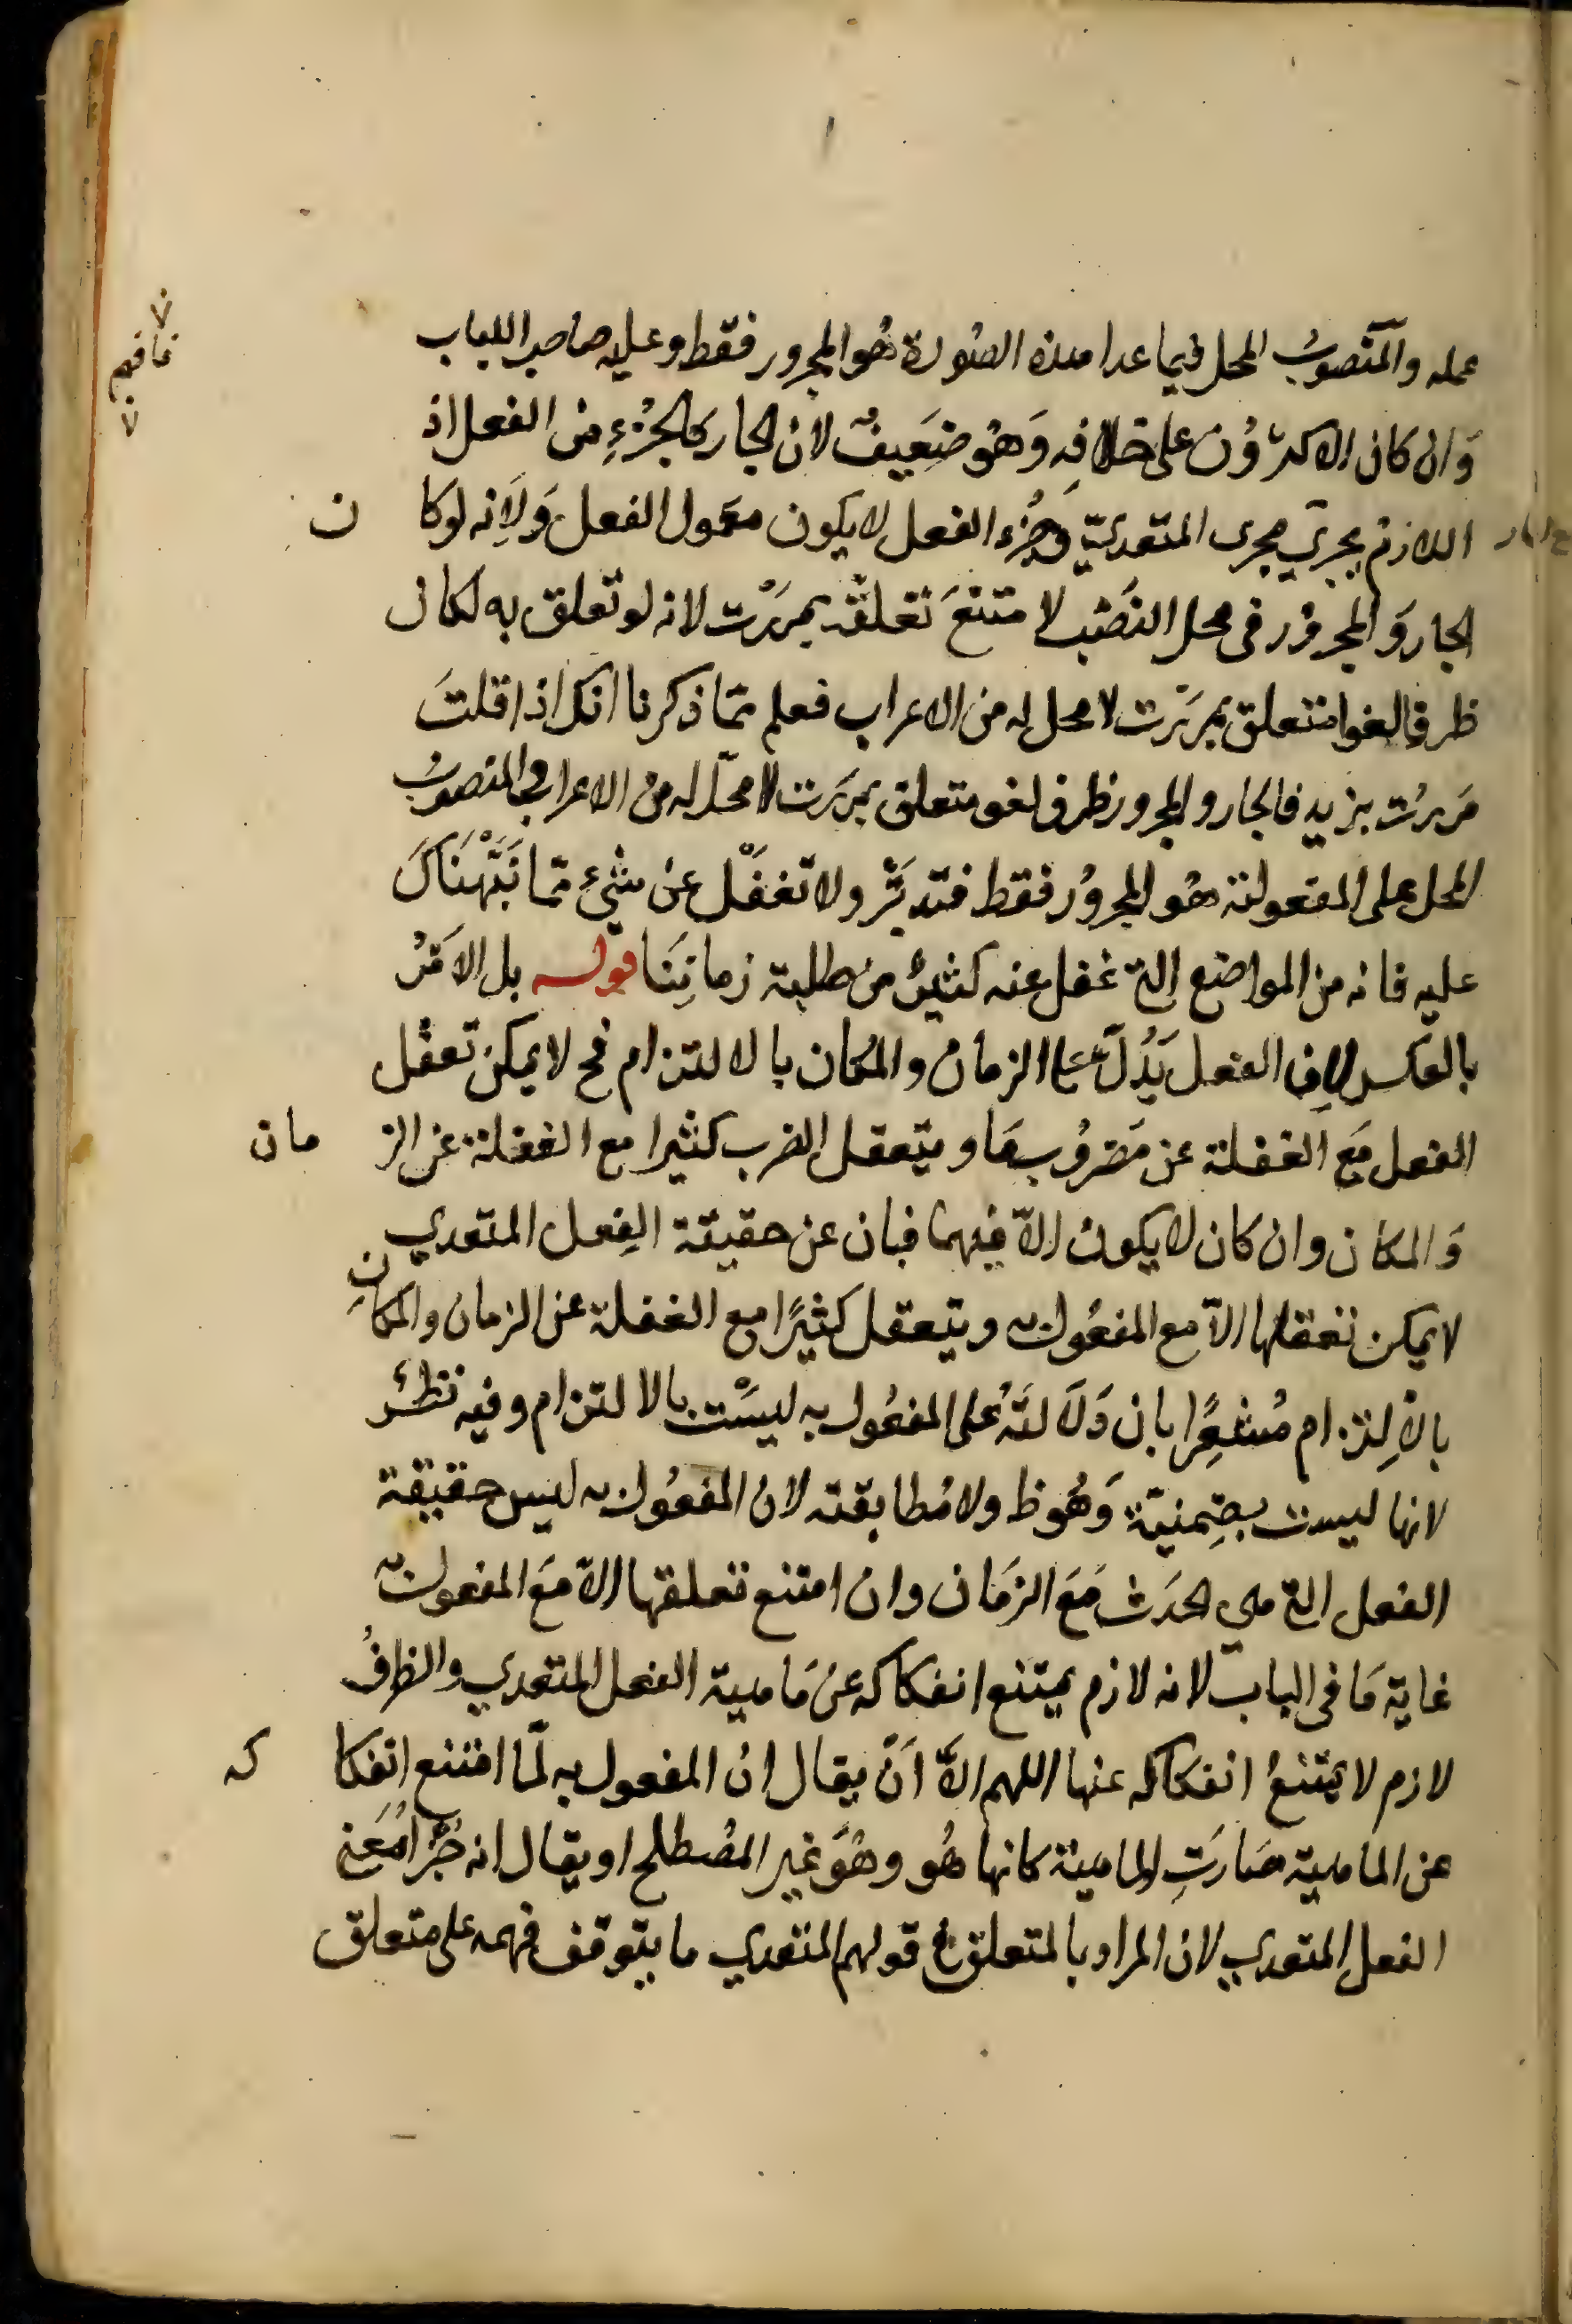 عمله والمنصوبُ المحل فيما عدا هذه الصُورة هُو المجرور فقط وعليه صاحب اللباب
وَان كان الاكثرؤُن على خلافِه وَهُو ضِعَيفٌ لان الجار كالجُزءِ من الفعل اذ
اللازم يجري مجرى المتعديّ وجُزء الفعل لا يكون معمول الفعل وَلاَنِه لو كان
الجار وَالمجرؤر فى محل النصَب لامتنعَ تعلقه بمررَت لانه لو تعلق به لكان
ظرفا لغوا متعلق بمررَت لا محل له من الاعراب فعلم ممّا ذكرنا انك اذا قلتَ
مَررُت بزيد فالجار والمجرور ظرف لغو متعلق بمررَت لا محلّ له من الاعراب والمنصوبُ
المحل على المفعولية هُو المجروُر فقط فتدبَّر ولا تغفَل عن شيْء ممّا نَبَّهْنَاكَ
عليه فانه من المواضع التي غفل عنه كثيرٌ من طلبة زمانِنَا قوله بل الاَمَرُ
بالعكس لاِن الفعل يَدُلّ على الزمان والمكان بالالتزام فح لا يمكن تعقل
الفعل مَع الغفلة عن مَضرُوب مَا ويتعقل الضرب كثيرا مع الغفلة عن الزمان
وَالمكان وان كان لا يكون الاّ فيهما فبان عن حقيقة الفِعل المتعدي
لا يمكن تعقلها الاّ مع المفعُول به ويتعقل كثيرًا مع الغفلة عن الزمان والمكانِ
بالاِلتزام مُشعِرًا بان دَلاَلتَهُ على المفعُول به ليسَت بالالتزام وفيه نظرٌ
لانها ليست بضِمنيّة وَهُو ظ ولا مُطابقته لان المفعُول به ليس حقيقة
الفعل التي هى الحدَث مَعَ الزمَان وان امتنع تعلقها الاّ مَعَ المفعول به
غاية مَا فى الباب لانه لازم يمتنع انفكاكه عن مَاهية الفعل المتعدي والظرفُ
لازم لا يمتنعُ انفكاكه عنها اللهم الاَّ اَنّ يقال ان المفعول به لمّا امتنع انفكاكه
عن الماهية صَارَتِ الماهية كانها هُو وهُوَ غير المصُطلح او يقال انه جُزْأ مُعَنى
الفعل المتعدي لان المراد بالمتعلق في قولهم المتعدي ما يتوقف فهمه على متعلق
فافهم